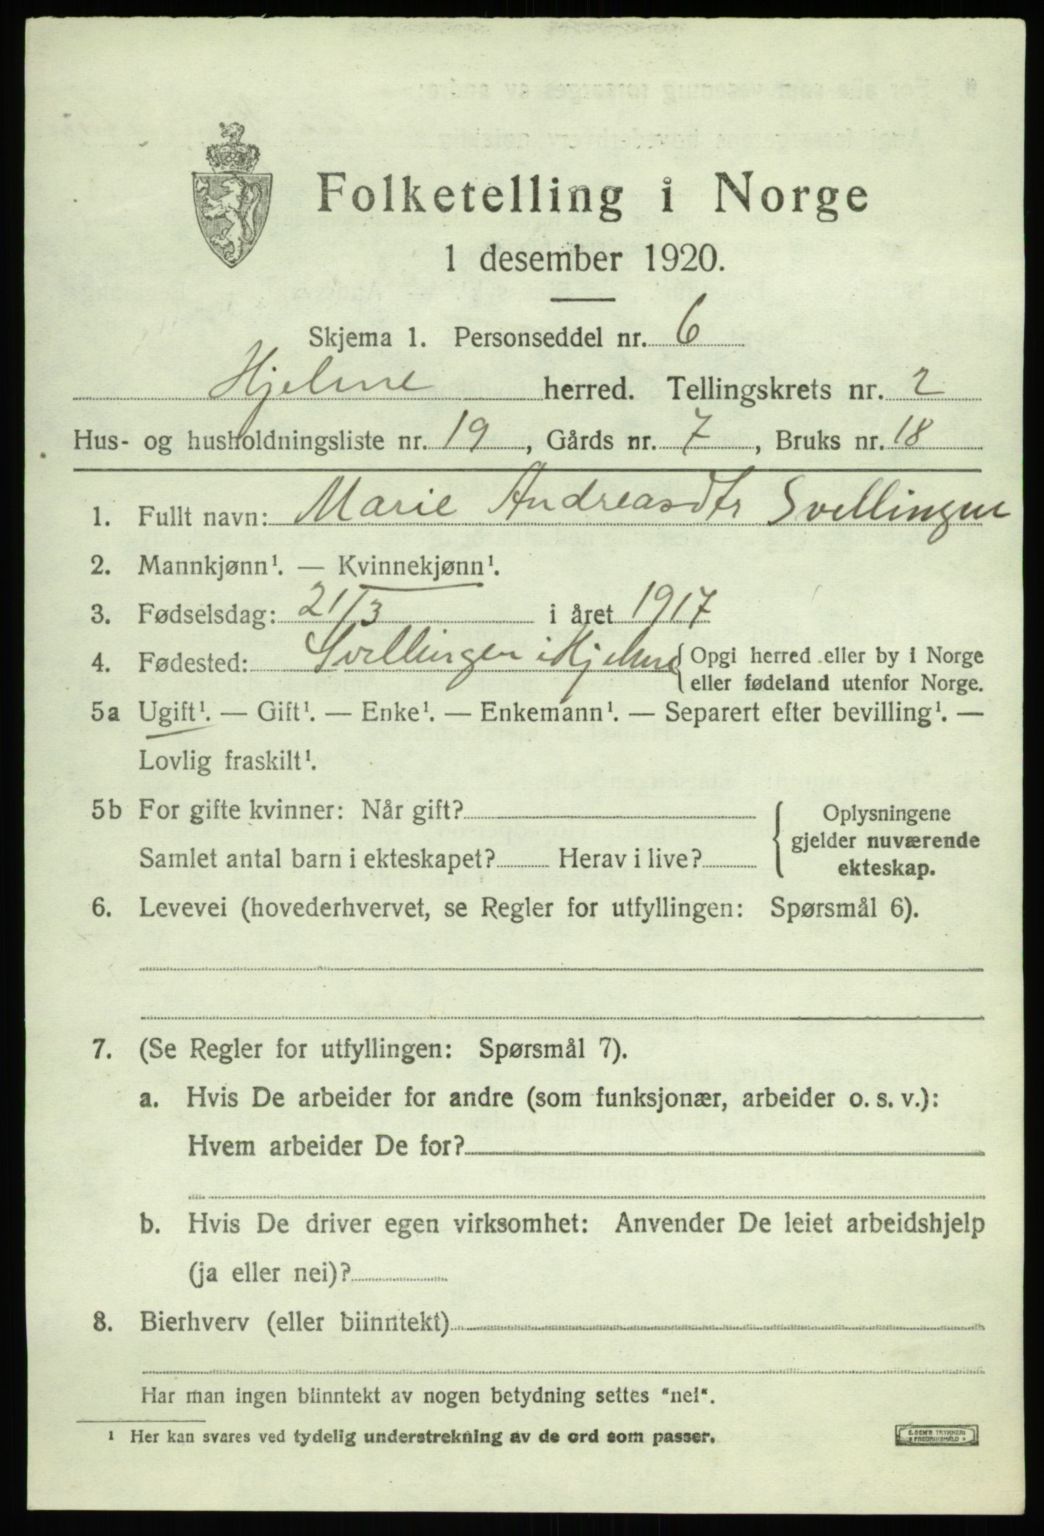 Folketelling i Norge
1 desember 1920.
Skjema 1. Personseddel nr. 6
Hjelme herred. Tellingskrets nr. 2
Hus- og husholdningsliste nr. 19, Gårds nr. 7, Bruks nr. 18
1. Fullt navn: Marie Andreasdtr Svellingen
2. Mannkjønn¹. — Kvinnekjønn¹.
3. Fødselsdag: 21/3 i året 1917
4. Fødested: Svellingen i Hjelme { Opgi herred eller by i Norge
eller fødeland utenfor Norge.
5a Ugift¹. — Gift¹. — Enke¹. — Enkemann¹. — Separert efter bevilling¹. —
Lovlig fraskilt¹.
5b For gifte kvinner: Når gift?
Samlet antal barn i ekteskapet? Herav i live?
{ Oplysningene
gjelder nuværende
ekteskap.
6. Levevei (hovederhvervet, se Regler for utfyllingen: Spørsmål 6).
7. (Se Regler for utfyllingen: Spørsmål 7).
a. Hvis De arbeider for andre (som funksjonær, arbeider o. s. v.):
Hvem arbeider De for?
b. Hvis De driver egen virksomhet: Anvender De leiet arbeidshjelp
(ja eller nei)?
8. Bierhverv (eller biinntekt)
Har man ingen biinntekt av nogen betydning settes "nei".
¹ Her kan svares ved tydelig understrekning av de ord som passer.